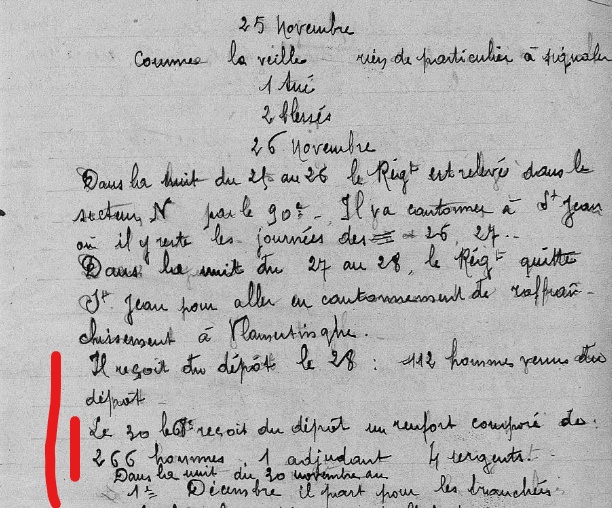 25 Novembre
Comme la veille rien de particulier à signaler
1 tué
2 blessés
26 Novembre
Dans la nuit du 25 au 26 le Régt est relevé dans le
secteur N par le 90e. Il va cantonner à St Jean
où il y reste les journées des 26, 27..
Dans la nuit du 27 au 28, le Régt quitte
St Jean pour aller en cantonnement de raffraî-
chissement à Vlamertinghe.
Il reçoit du dépôt le 28 : 112 hommes venus du
dépôt
Le 30 le reçoit du dépôt un renfort composé de
266 hommes 1 adjudant 4 sergents.
Dans la nuit du 30 novembre au
1er Décembre il part pour les tranchées